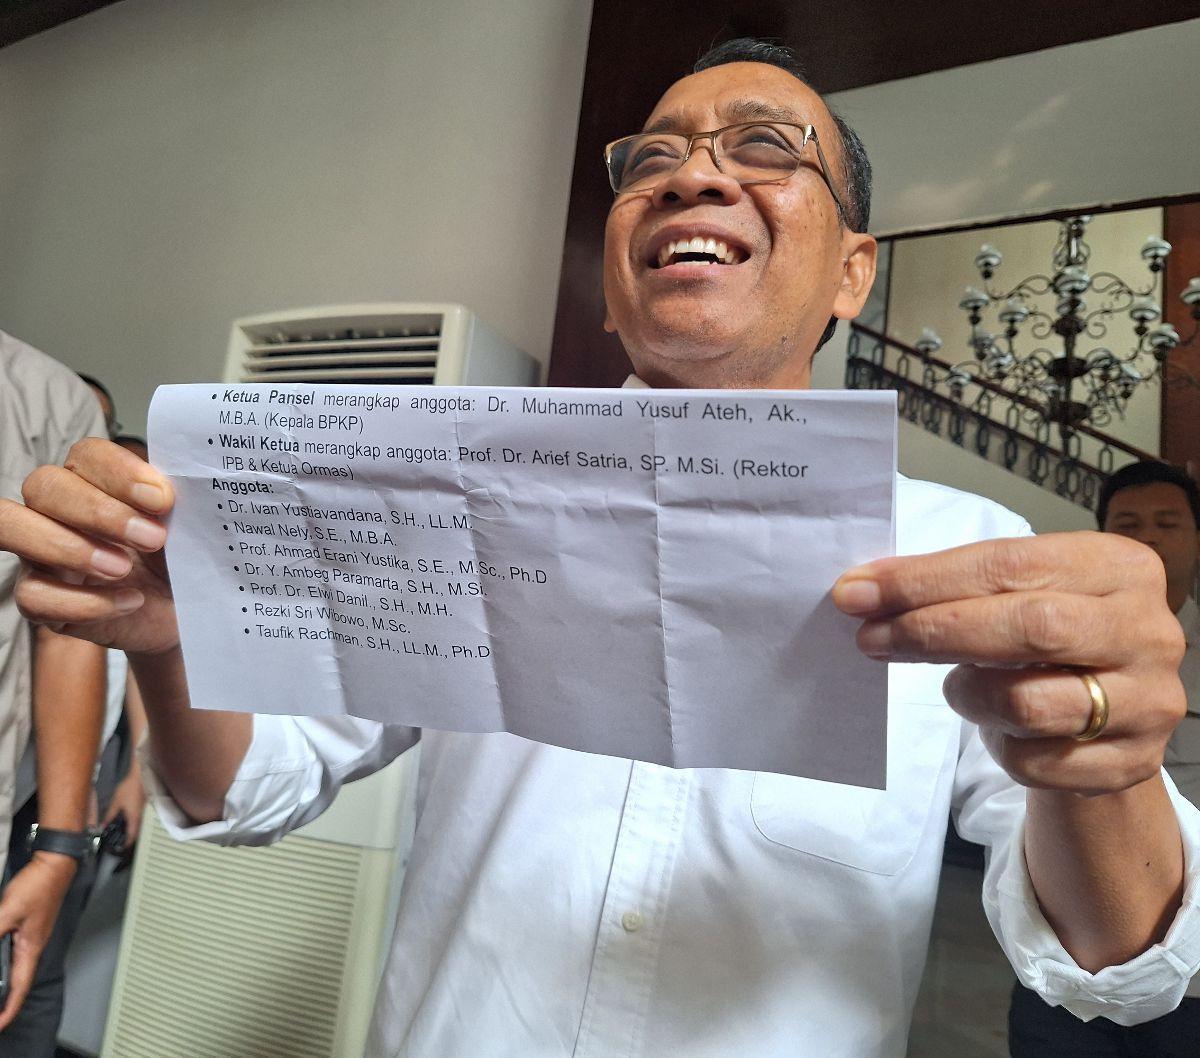 • Ketua Pansel merangkap anggota: Dr. Muhammad Yusuf Ateh, Ak.,
M.B.A. (Kepala BPKP)
• Wakil Ketua merangkap anggota: Prof. Dr. Arief Satria, SP. M.Si. (Rektor
IPB & Ketua Ormas)
Anggota:
• Dr. Ivan Yustiavandana, S.H., LL.M.
• Nawal Nely, S.E., M.B.A.
• Prof. Ahmad Erani Yustika, S.E., M.Sc., Ph.D
• Dr. Y. Ambeg Paramarta, S.H., M.Si.
• Prof. Dr. Elwi Danil., S.H., M.H.
• Rezki Sri Wibowo, M.Sc.
• Taufik Rachman, S.H., LL.M., Ph.D